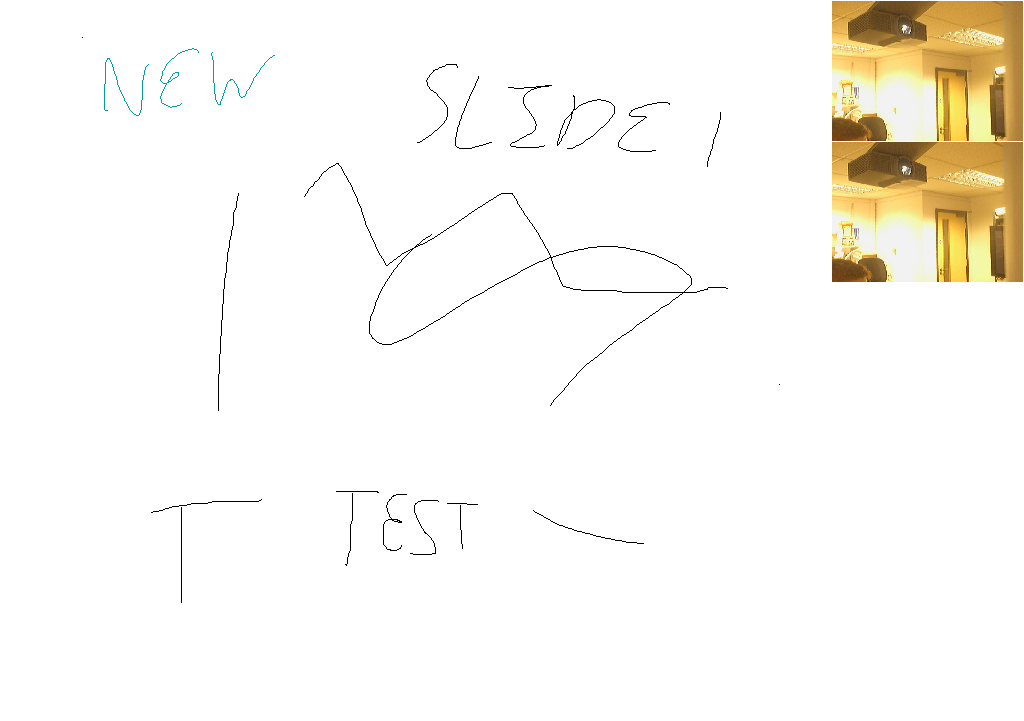 NEW
SLIDE 1
T TEST